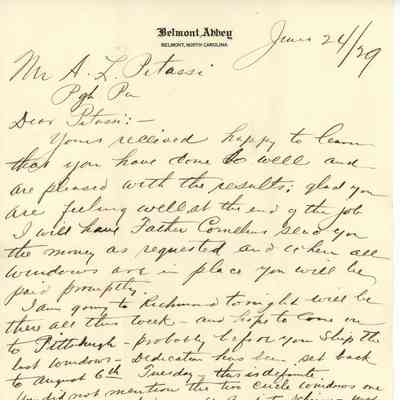 Belmont Abbey
BELMONT, NORTH CAROLINA
June 24/29
Mr A. L. Pitassi
Pgh Pa
Dear Pitassi:-
Yours received happy to learn
that you have done so well and
are pleased with the results; glad you
are feeling well at the end of the job
I will have Father Cornelius send you
the money as requested and when all
windows are in place you will be
paid promptly.
I am going to Richmond tonight will be
there all this week - and hope to come on
to Pittsburgh - probably before you ship the
last windows - Dedication has been set back
to August 6th Tuesday, this is definite
You did not mention the two circle windows one